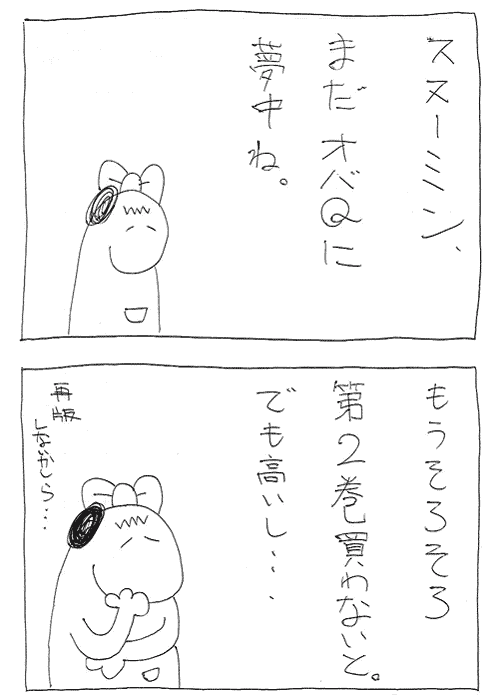 スヌーミン、
まだオバQに
夢中ね。
もうそろそろ
第2巻買わないと。
でも高いし・・・.
再版
しないかしら・・・